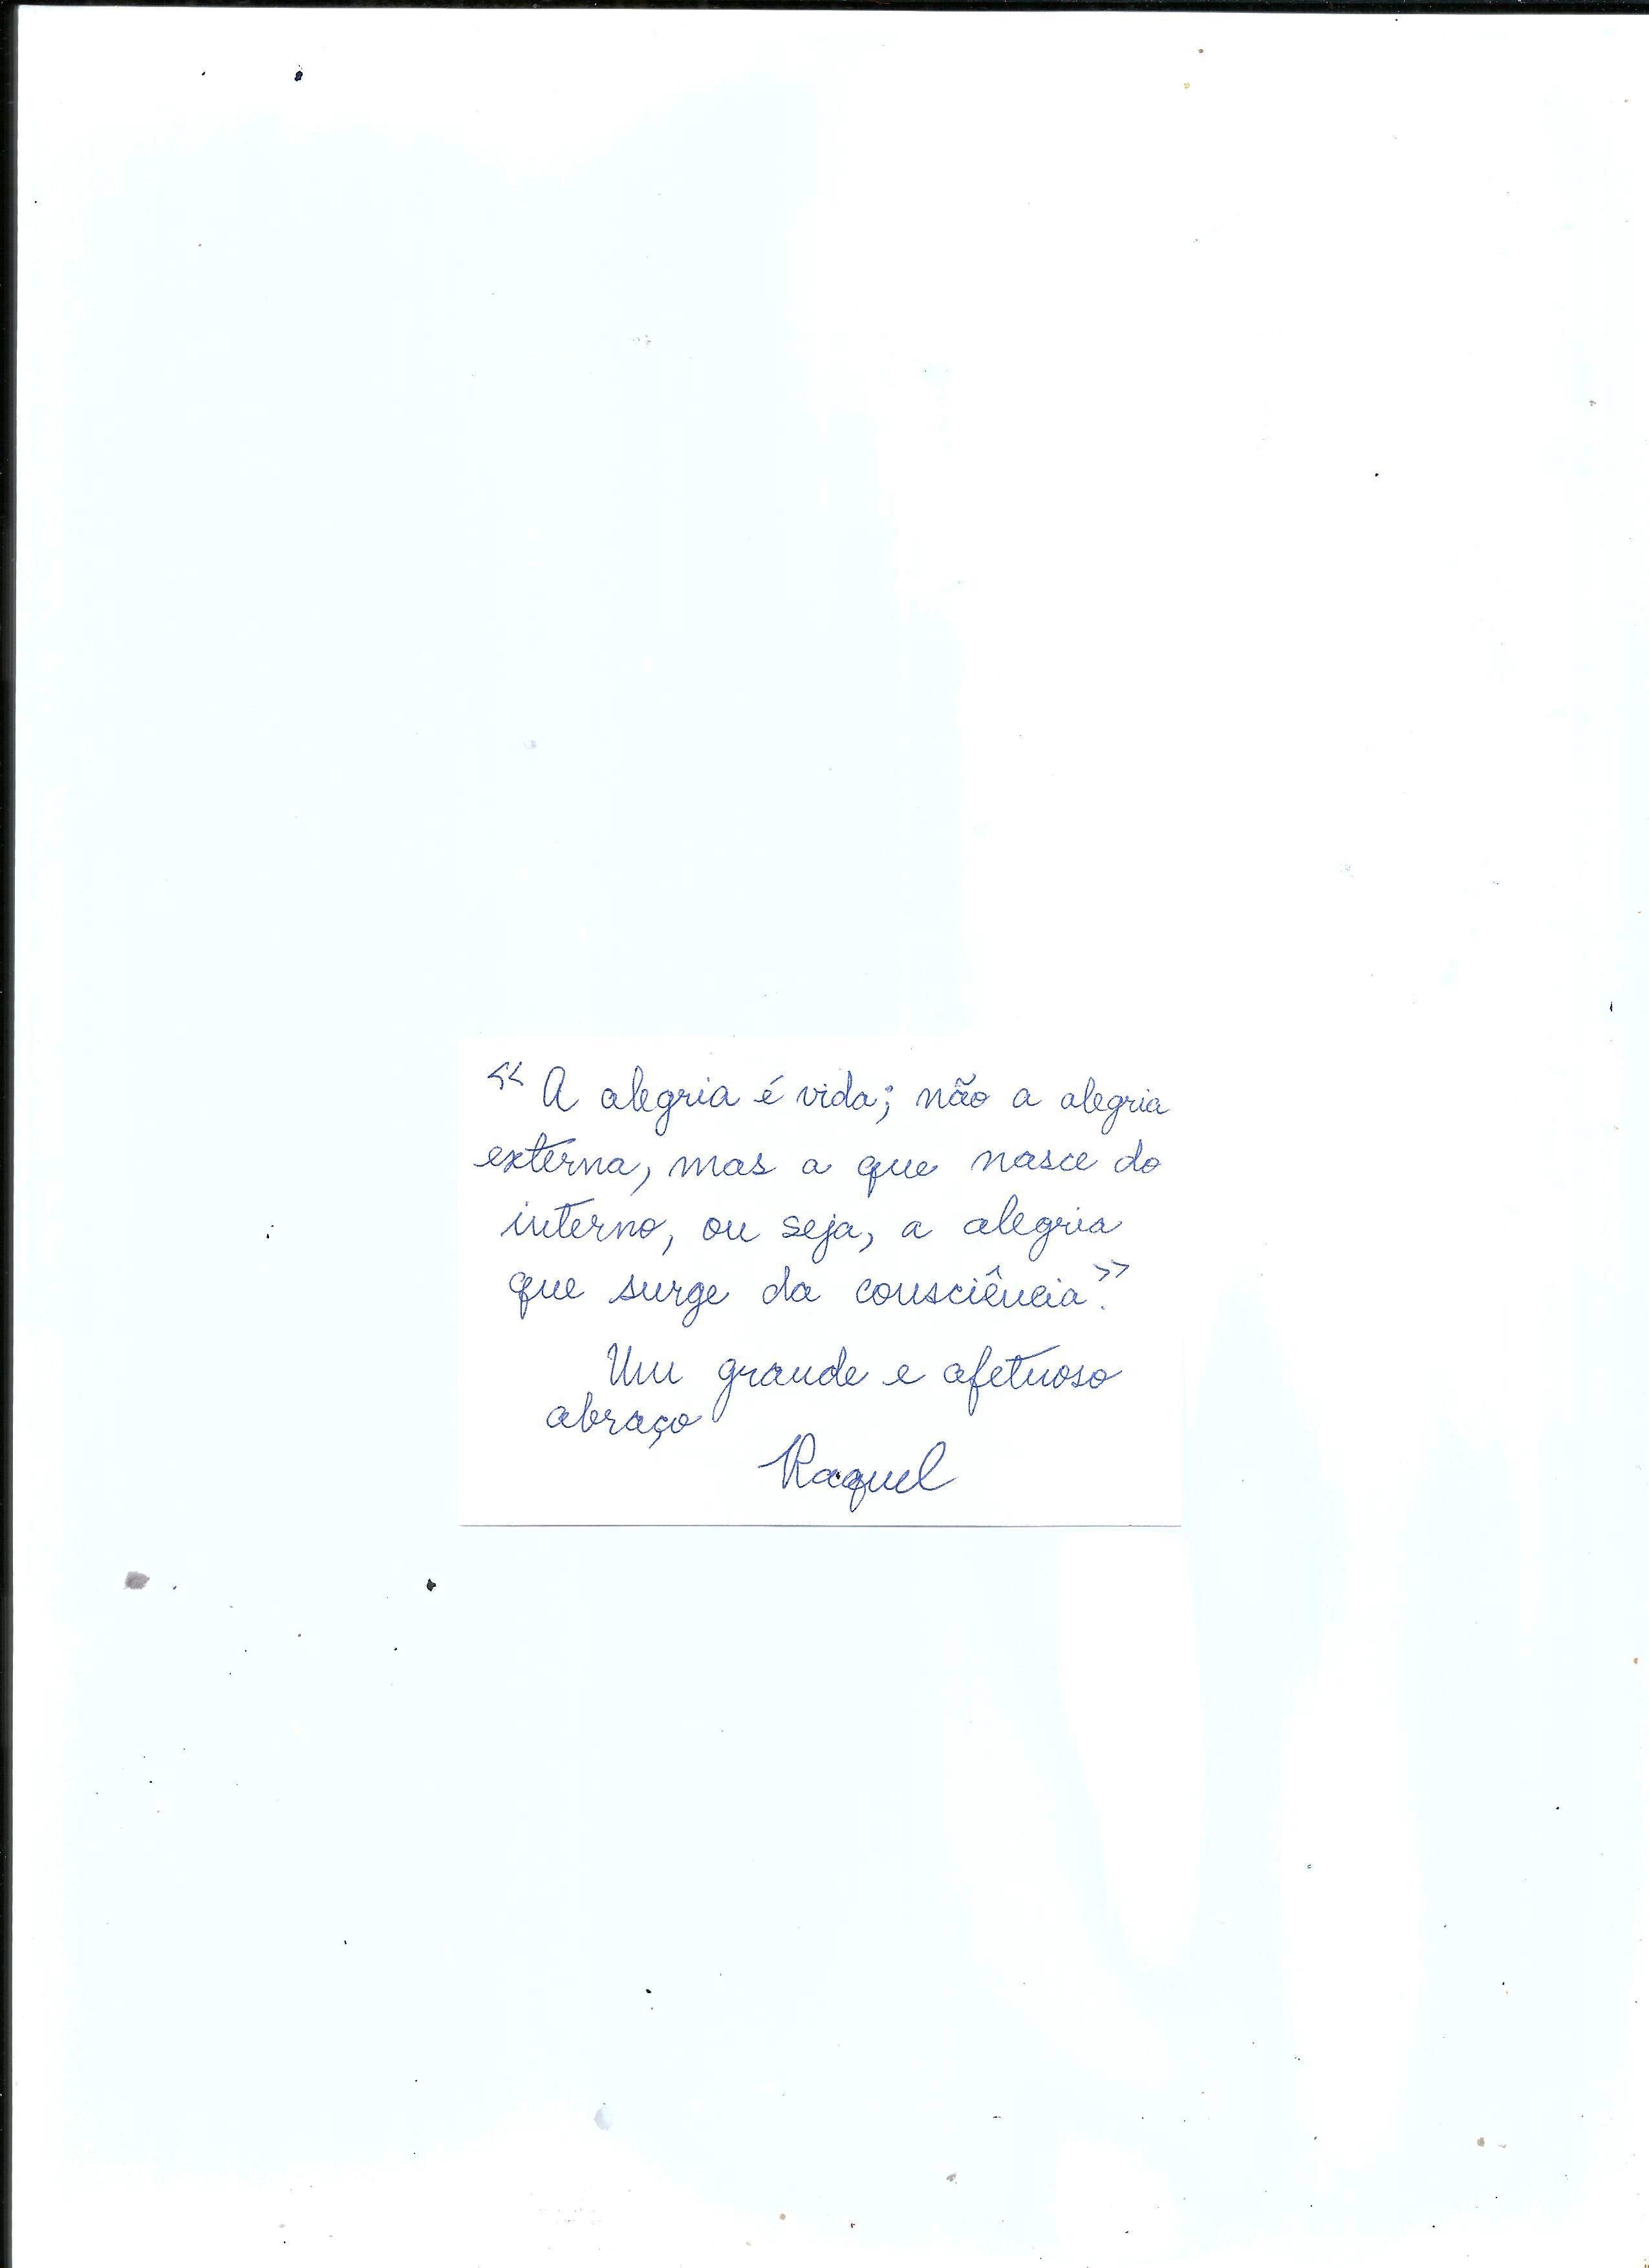 “A alegria é vida; não a alegria
externa, mas a que nasce do
interno, ou seja, a alegria
que surge da consciência”.
Um grande e afetuoso
abraço
Raquel